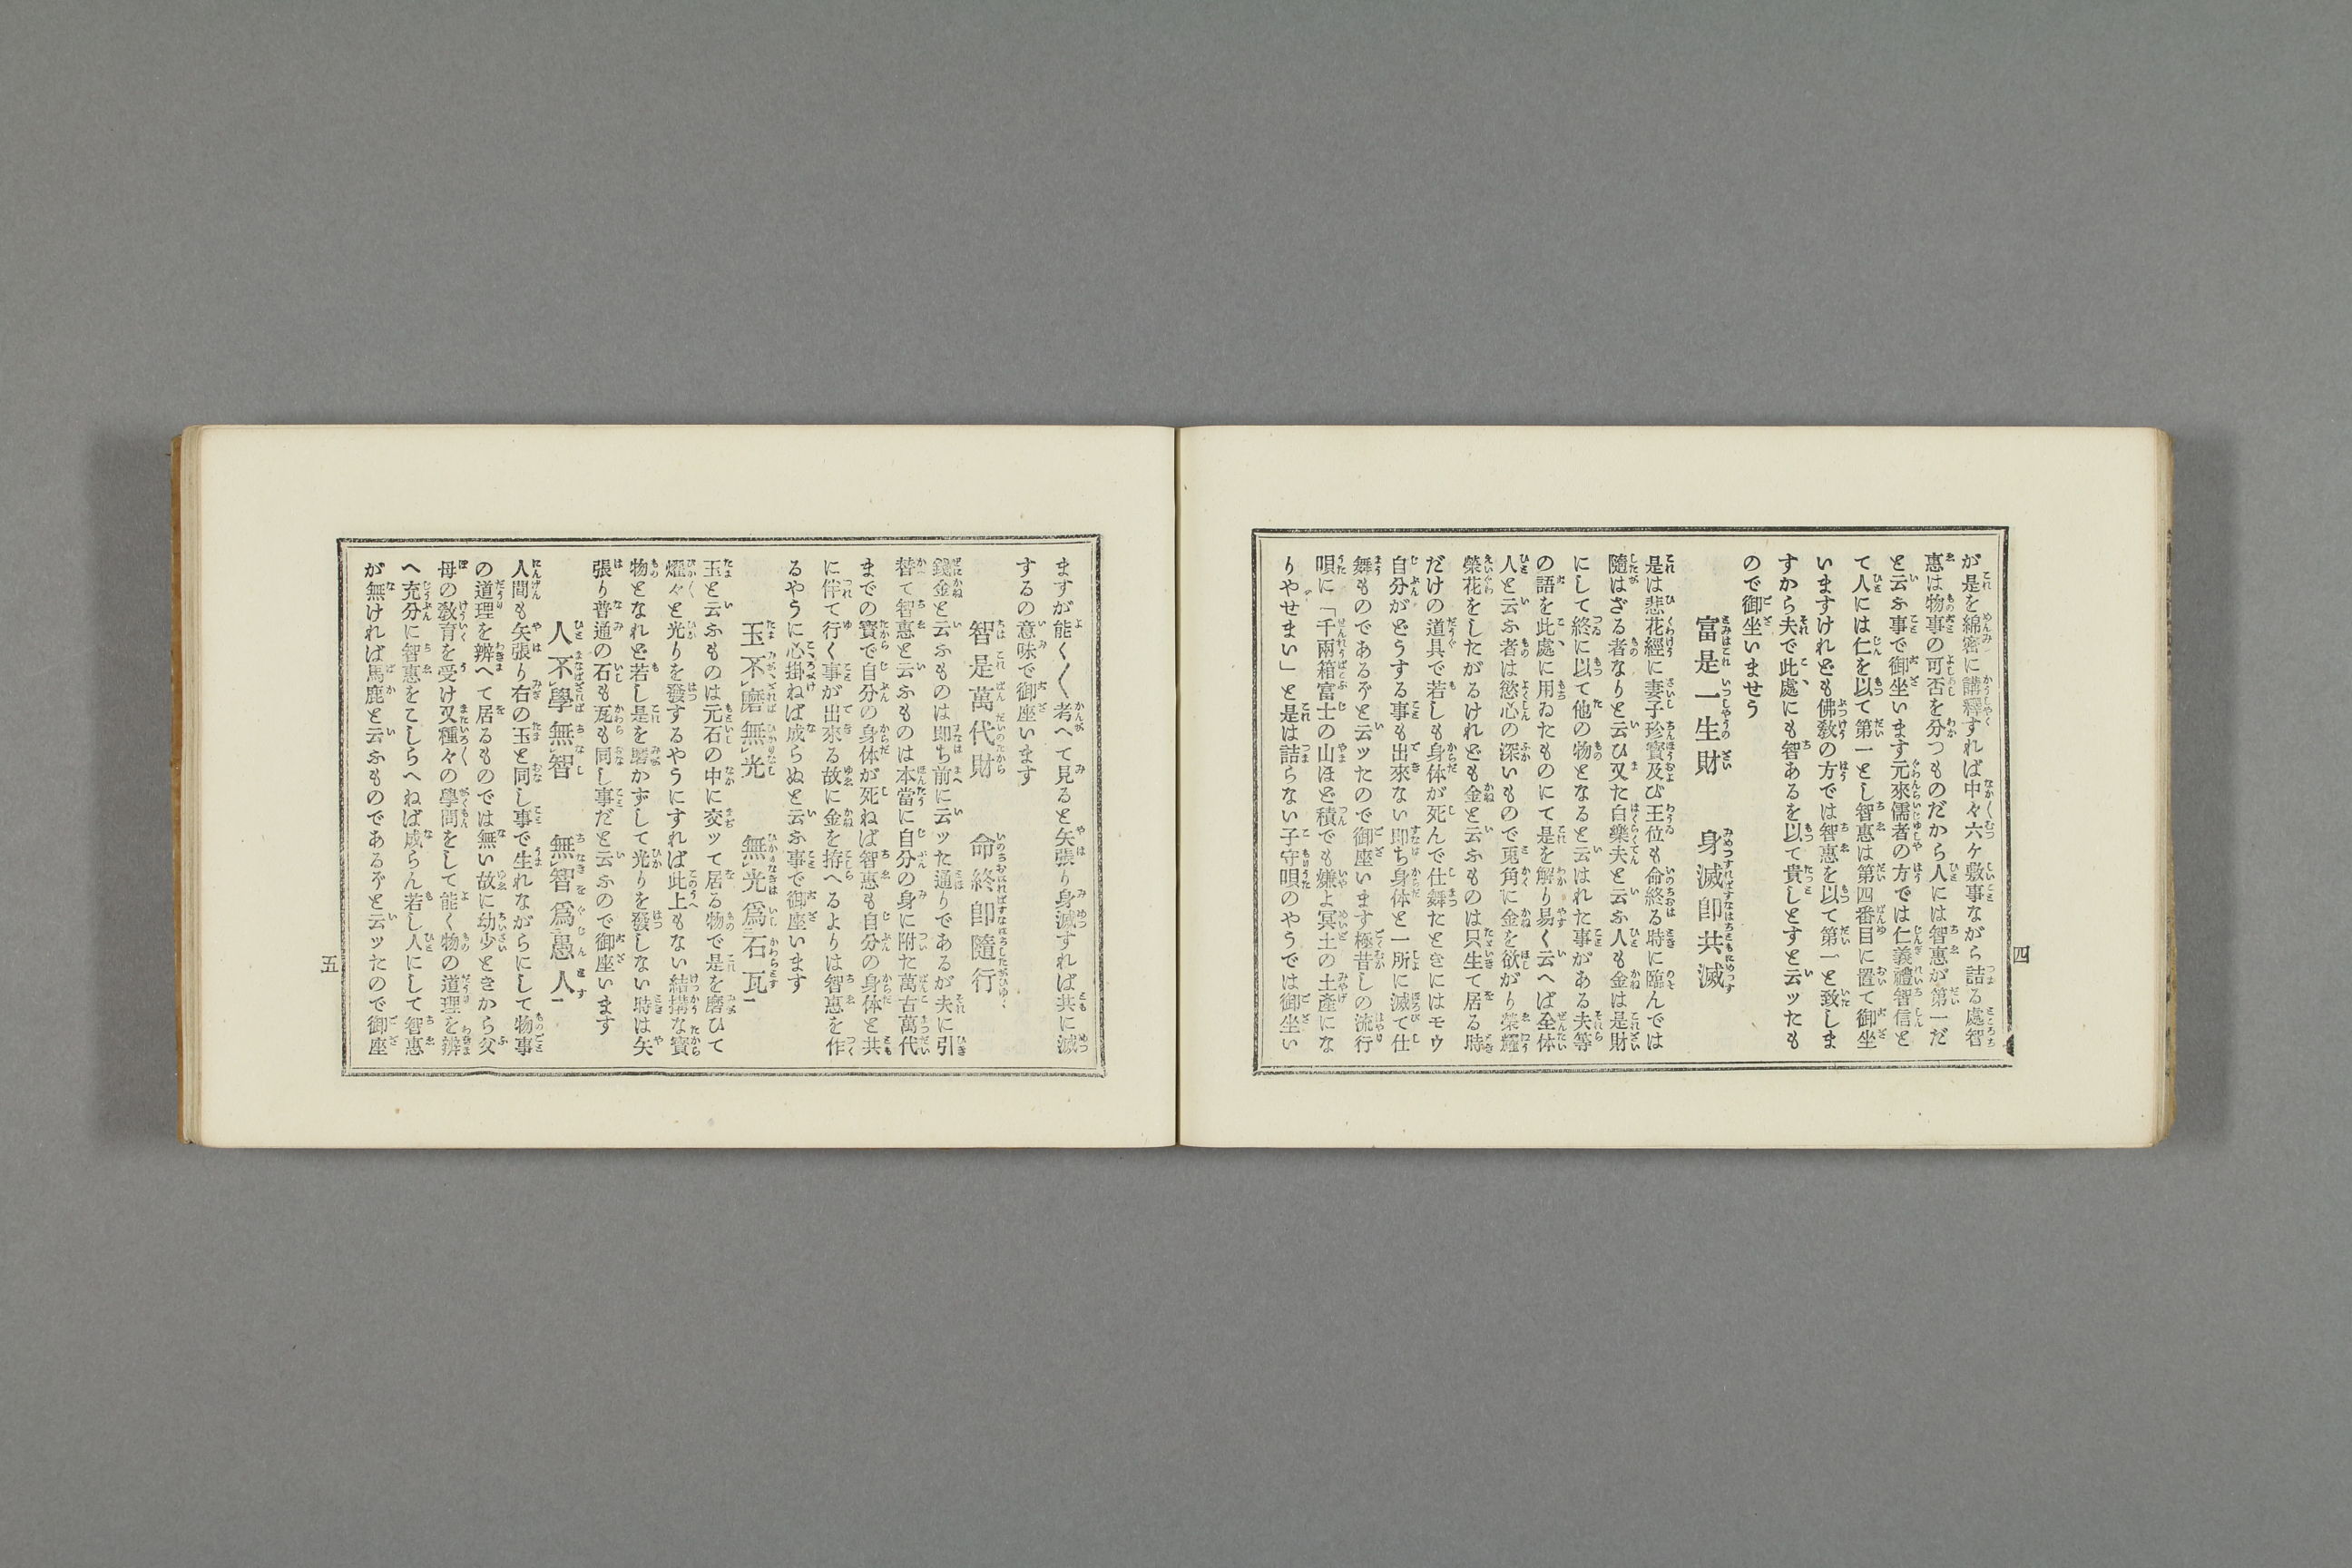 四
が是を綿密に講釋すれば中々六ケ敷事ながら詰る處智
惠は物事の可否を分つものだから人には智惠が第一だ
と云ふ事で御坐います元來儒者の方では仁義禮智信と
て人には仁を以て第一とし智惠は第四番目に置て御坐
いますけれども佛敎の方では智惠を以て第一と致しま
すから夫で此處にも智あるを以て貴しとすと云ッたも
ので御坐いませう
富是一生財　身滅卽共滅
是は悲花經に妻子珍寳及び王位も命終る時に臨んでは
隨はざる者なりと云ひ又た白樂天と云ふ人も金は是財
にして終に以て他の物となると云はれた事がある夫等
の語を此處に用ゐたものにて是を解り易く云へば全体
人と云ふ者は慾心の深いもので兎角に金を欲がり榮耀
榮花をしたがるけれども金と云ふものは只生て居る時
だけの道具で若しも身体が死んで仕舞たときにはモウ
自分がどうする事も出來ない卽ち身体と一所に滅て仕
舞ものであるぞと云ッたので御座います極昔しの流行
唄に「千兩箱富士の山ほど積でも嫌よ冥土の土產にな
りやせまい」と是は詰らない子守唄のやうでは御坐い
ますが能く〱考へて見ると矢張り身滅すれば共に滅
するの意味で御座います
智是萬代財　命終卽隨行
錢金と云ふものは卽ち前に云ッた通りであるが夫に引
替て智惠と云ふものは本當に自分の身に附た萬古萬代
までの寳で自分の身体が死ねば智惠も自分の身体と共
に伴て行く事が出來る故に金を拵へるよりは智惠を作
るやうに心掛ねば成らぬと云ふ事で御座います
玉不磨無光　無光爲石瓦
玉と云ふものは元石の中に交ッて居る物で是を磨ひて
燿々と光りを發するやうにすれば此上もない結搆な寳
物となれど若し是を磨かずして光りを發しない時は矢
張り普通の石も瓦も同し事だと云ふので御座います
人不學無智　無智爲愚人
人間も矢張り右の玉と同し事で生れながらにして物事
の道理を辨へて居るものでは無い故に幼少ときから父
母の敎育を受け又種々の學問をして能く物の道理を辨
へ充分に智惠をこしらへねば成らん若し人にして智惠
が無ければ馬鹿と云ふものであるぞと云ッたので御座
五